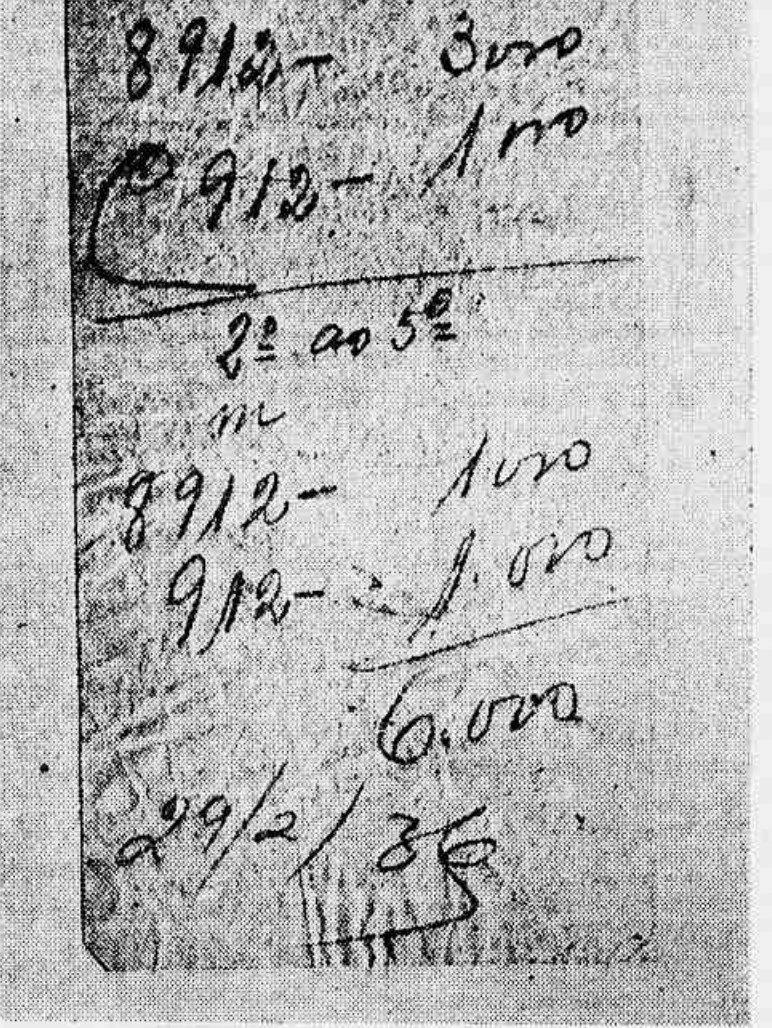 8912- 3000
912- 1000
2º ao 5º
m
8912- 1000
912- 1.000
6.000
29/2/36